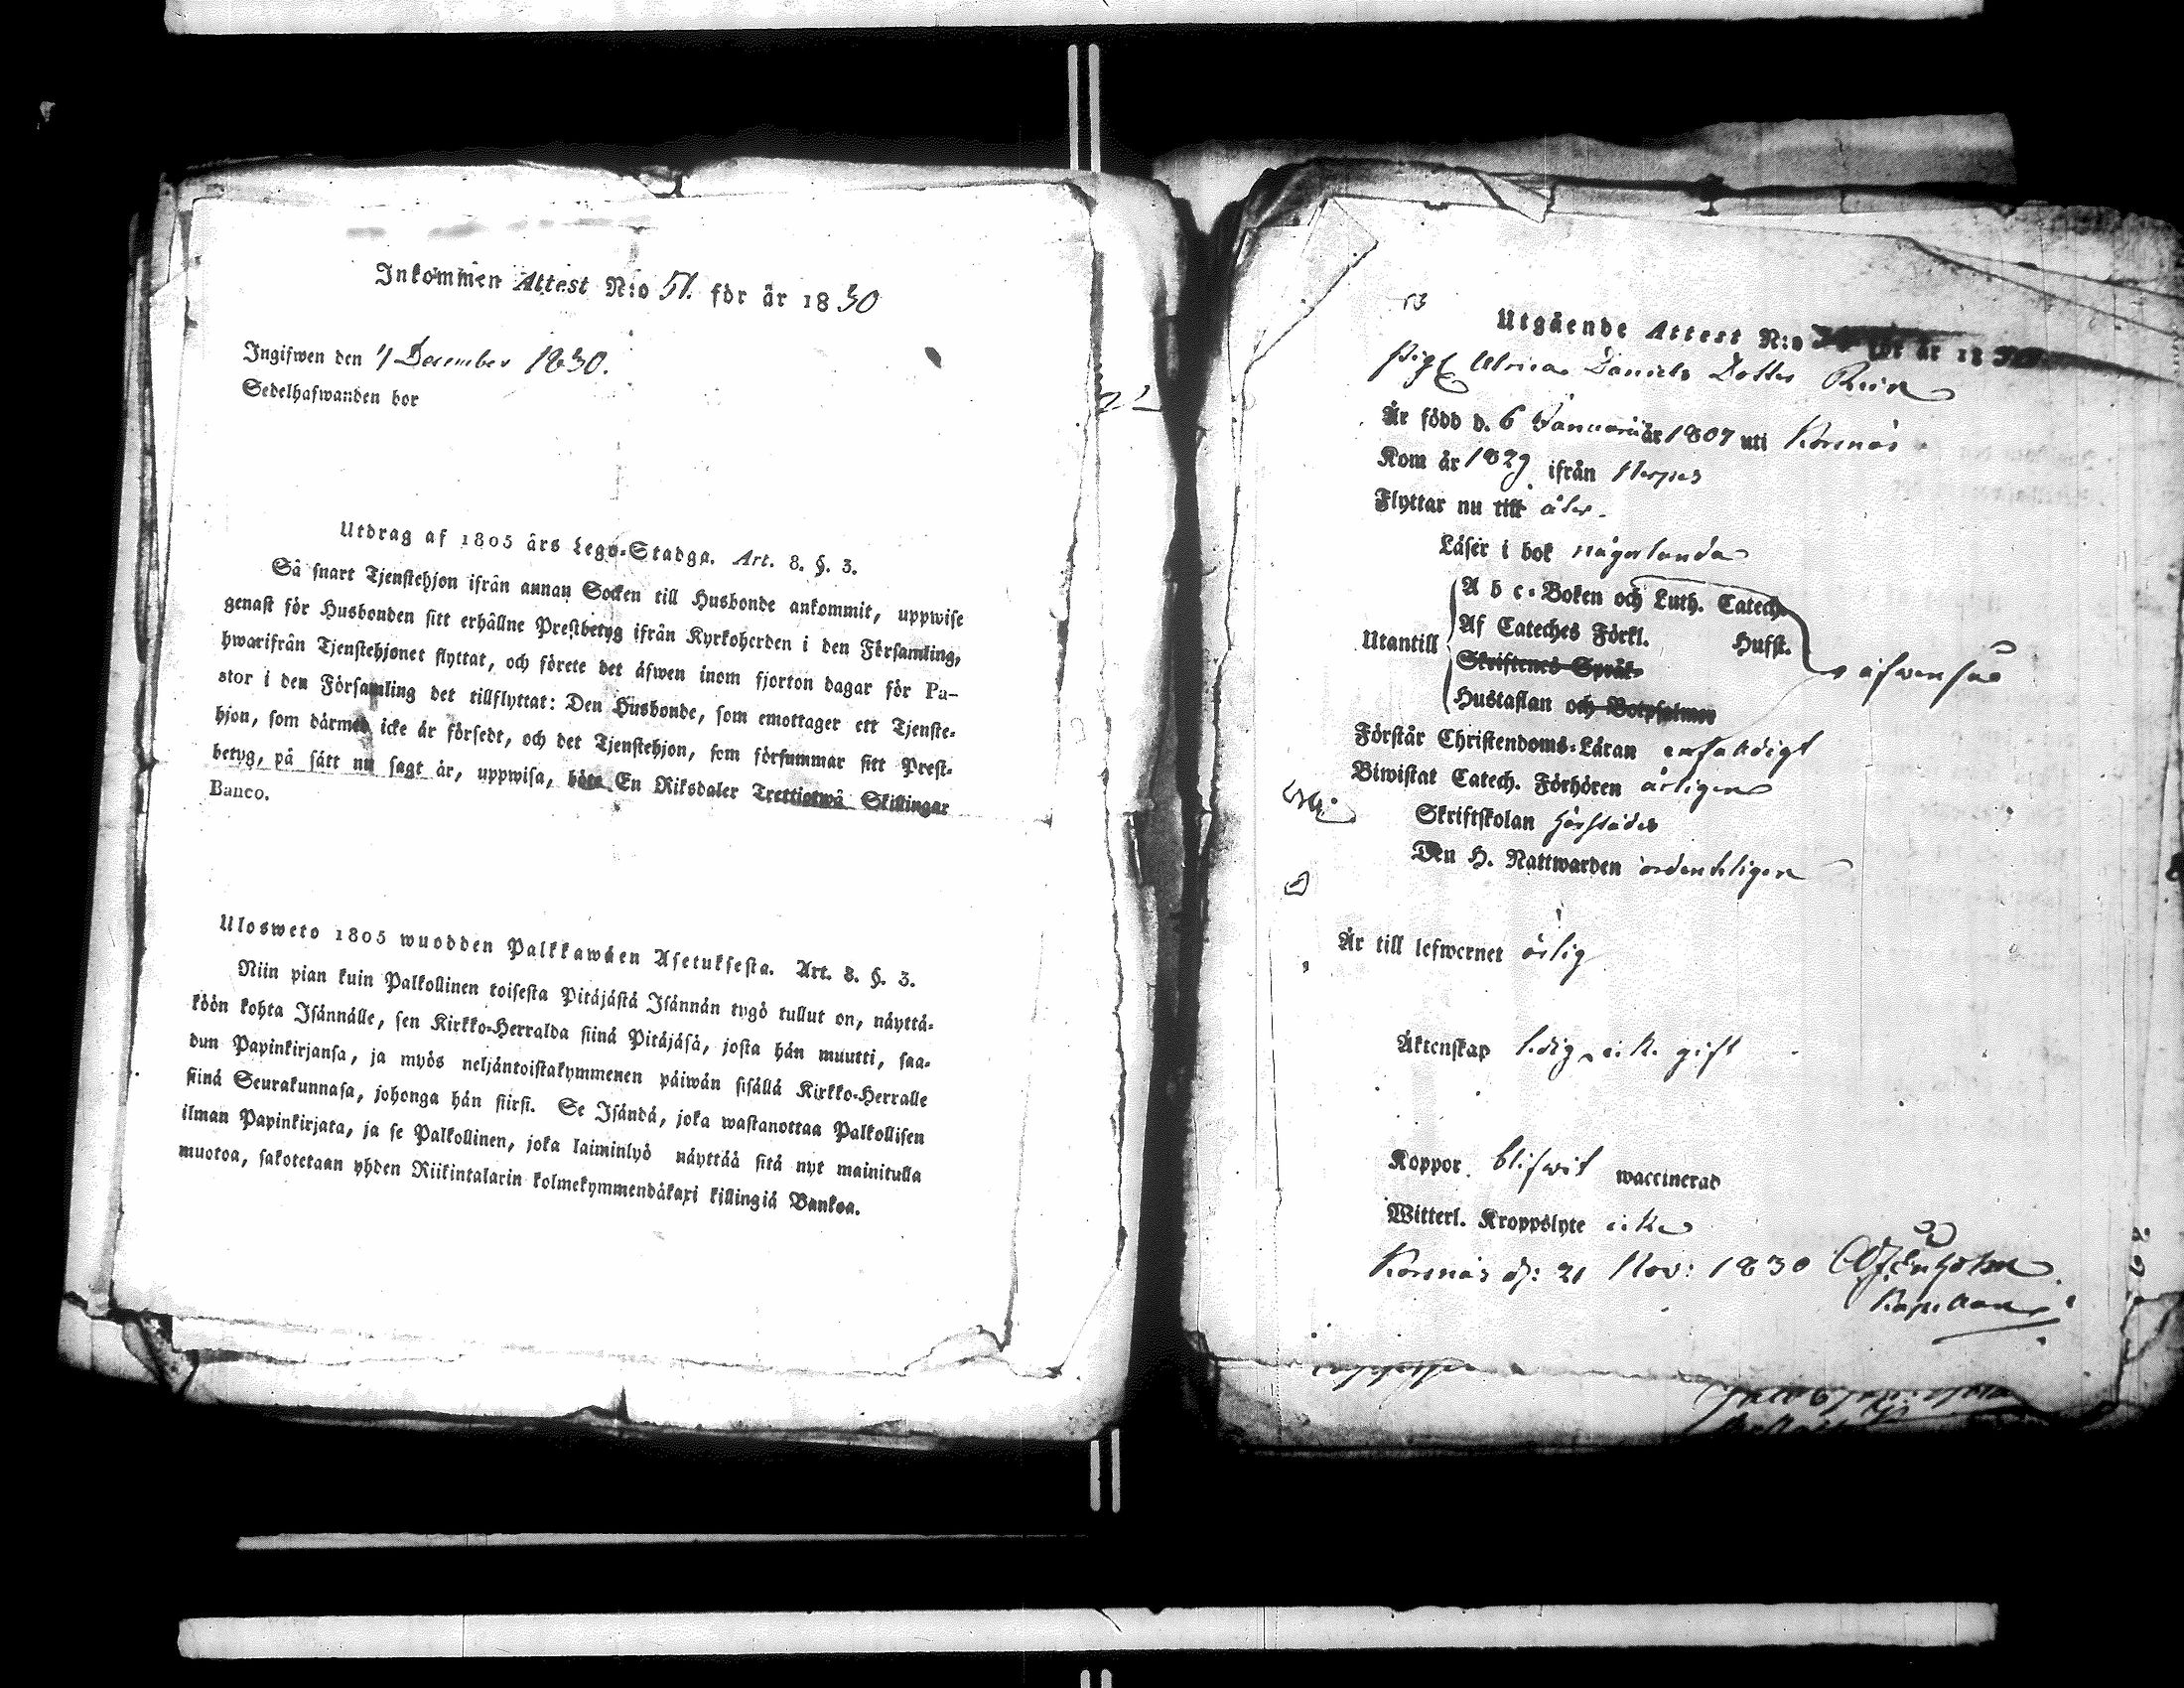 Inkommen Attest N:o 51. för år 1830
Ingifwen den 4 December 1830.
Sedelhafwanden bor
Utdrag af 1805 års Lego-Stadga. Art. 8. §. 3.
Så snart Tjenstehjon ifrån annan Socken till Husbonde ankommit, uppwise
genast för Husbonden sitt erhållne Prestbetyg ifrån Kyrkoherden i den Församling,
hwarifrån Tjenstehjonet flyttat, och förete det äfwen inom fjorton dagar för Pa-
stor i den Församling det tillflyttat: Den Husbonde, som emottager ett Tjenste-
hjon, som därmed icke är försedt, och det Tjenstehjon, som försummar sitt Prest-
betyg, på sätt nu sagt är, uppwisa, böte En Riksdaler Trettiotwå Skillingar
Banco.
Ulosweto 1805 wuodden Palkkawäen Asetuksesta. Art. 8. §. 3.
Niin pian kuin Palkollinen toisesta Pitäjästä Isännän tygö tullut on, näyttä-
köön kohta Isännälle, sen Kirkko-Herralda siinä Pitäjäsä, josta hän muutti, saa-
dun Papinkirjansa, ja myös neljäntoistakymmenen päiwän sisällä Kirkko-Herralle
siinä Seurakunnasa, johonga hän siirsi. Se Isändä, joka wastanottaa Palkollisen
ilman Papinkirjata, ja se Palkollinen, joka laiminlyö näyttää sitä nyt mainitulla
muotoa, sakotetaan yhden Riikintalarin kolmekymmendäkaxi killingiä Bankoa.
53
Utgående Attest N:o för år 18
Pig Ulrica Daniels Dotter
Är född d. 6 Januarii år 1807 uti Korsnäs
Kom år 1829 ifrån Nerpes
Flyttar nu till åter.
Läser i bok någorlunda
A b c-Boken och Luth. Catech.
Af Cateches Förkl. Hufst.
Utantill äfwen så
Skriftenes Språk
Hustaflan och Botpsalmer
Förstår Christendoms-Läran enfaldigt
Biwistat Catech. Förhören årligen
Skriftskolan härstädes
Den H. Nattwarden ordenteligen
Är till lefwernet ärlig
Äktenskap ledig, ick. gift
Koppor blifwit waccinerad
Witterl. Kroppslyte icke
Korsnäs d: 21 Nov: 1830
Kapellan